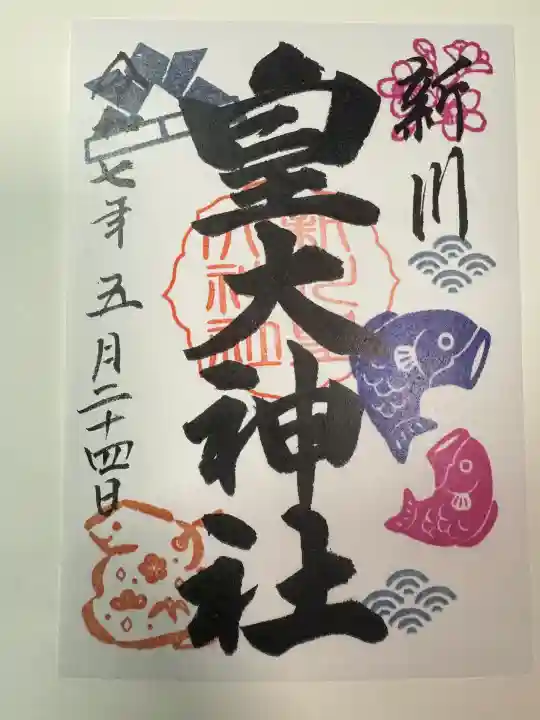 新川
皇大神社
令和七年五月二十四日